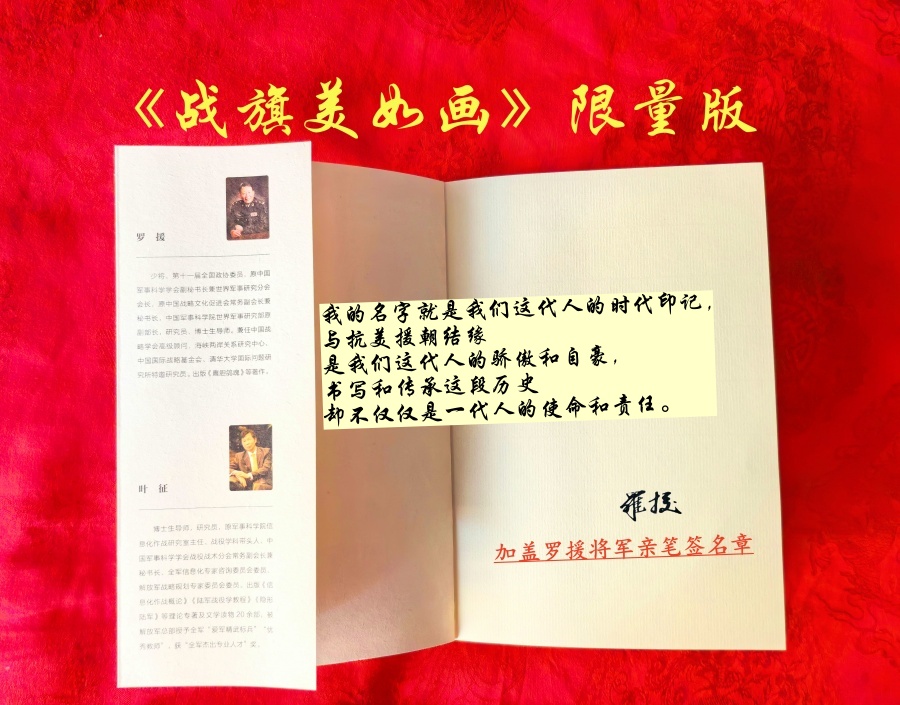 《战旗美如画》限量版
罗 援
少将,第十一届全国政协委员,原中国
军事科学学会副秘书长兼世界军事研究分会
会长,原中国战略文化促进会常务副会长兼
秘书长,中国军事科学院世界军事研究部原
副部长,研究员,博士生导师。兼任中国战
略学会高级顾问、海峡两岸关系研究中心、
中国国际战略基金会、清华大学国际问题研
究所特邀研究员。出版《鹰胆鸽魂》等著作。
叶 征
博士生导师,研究员,原军事科学院信
息化作战研究室主任、战役学科带头人,中
国军事科学学会战役战术分会常务副会长兼
秘书长,全军信息化专家咨询委员会委员,
解放军战略规划专家委员会委员。出版《信
息化作战概论》《陆军战役学教程》《隐形
陆军》等理论专著及文学读物20余部,被
解放军总部授予全军“爱军精武标兵”“优
秀教师”,获“全军杰出专业人才”奖。
我的名字就是我们这代人的时代印记,
与抗美援朝结缘
是我们这代人的骄傲和自豪,
书写和传承这段历史
却不仅仅是一代人的使命和责任。
罗援
加盖罗援将军亲笔签名章